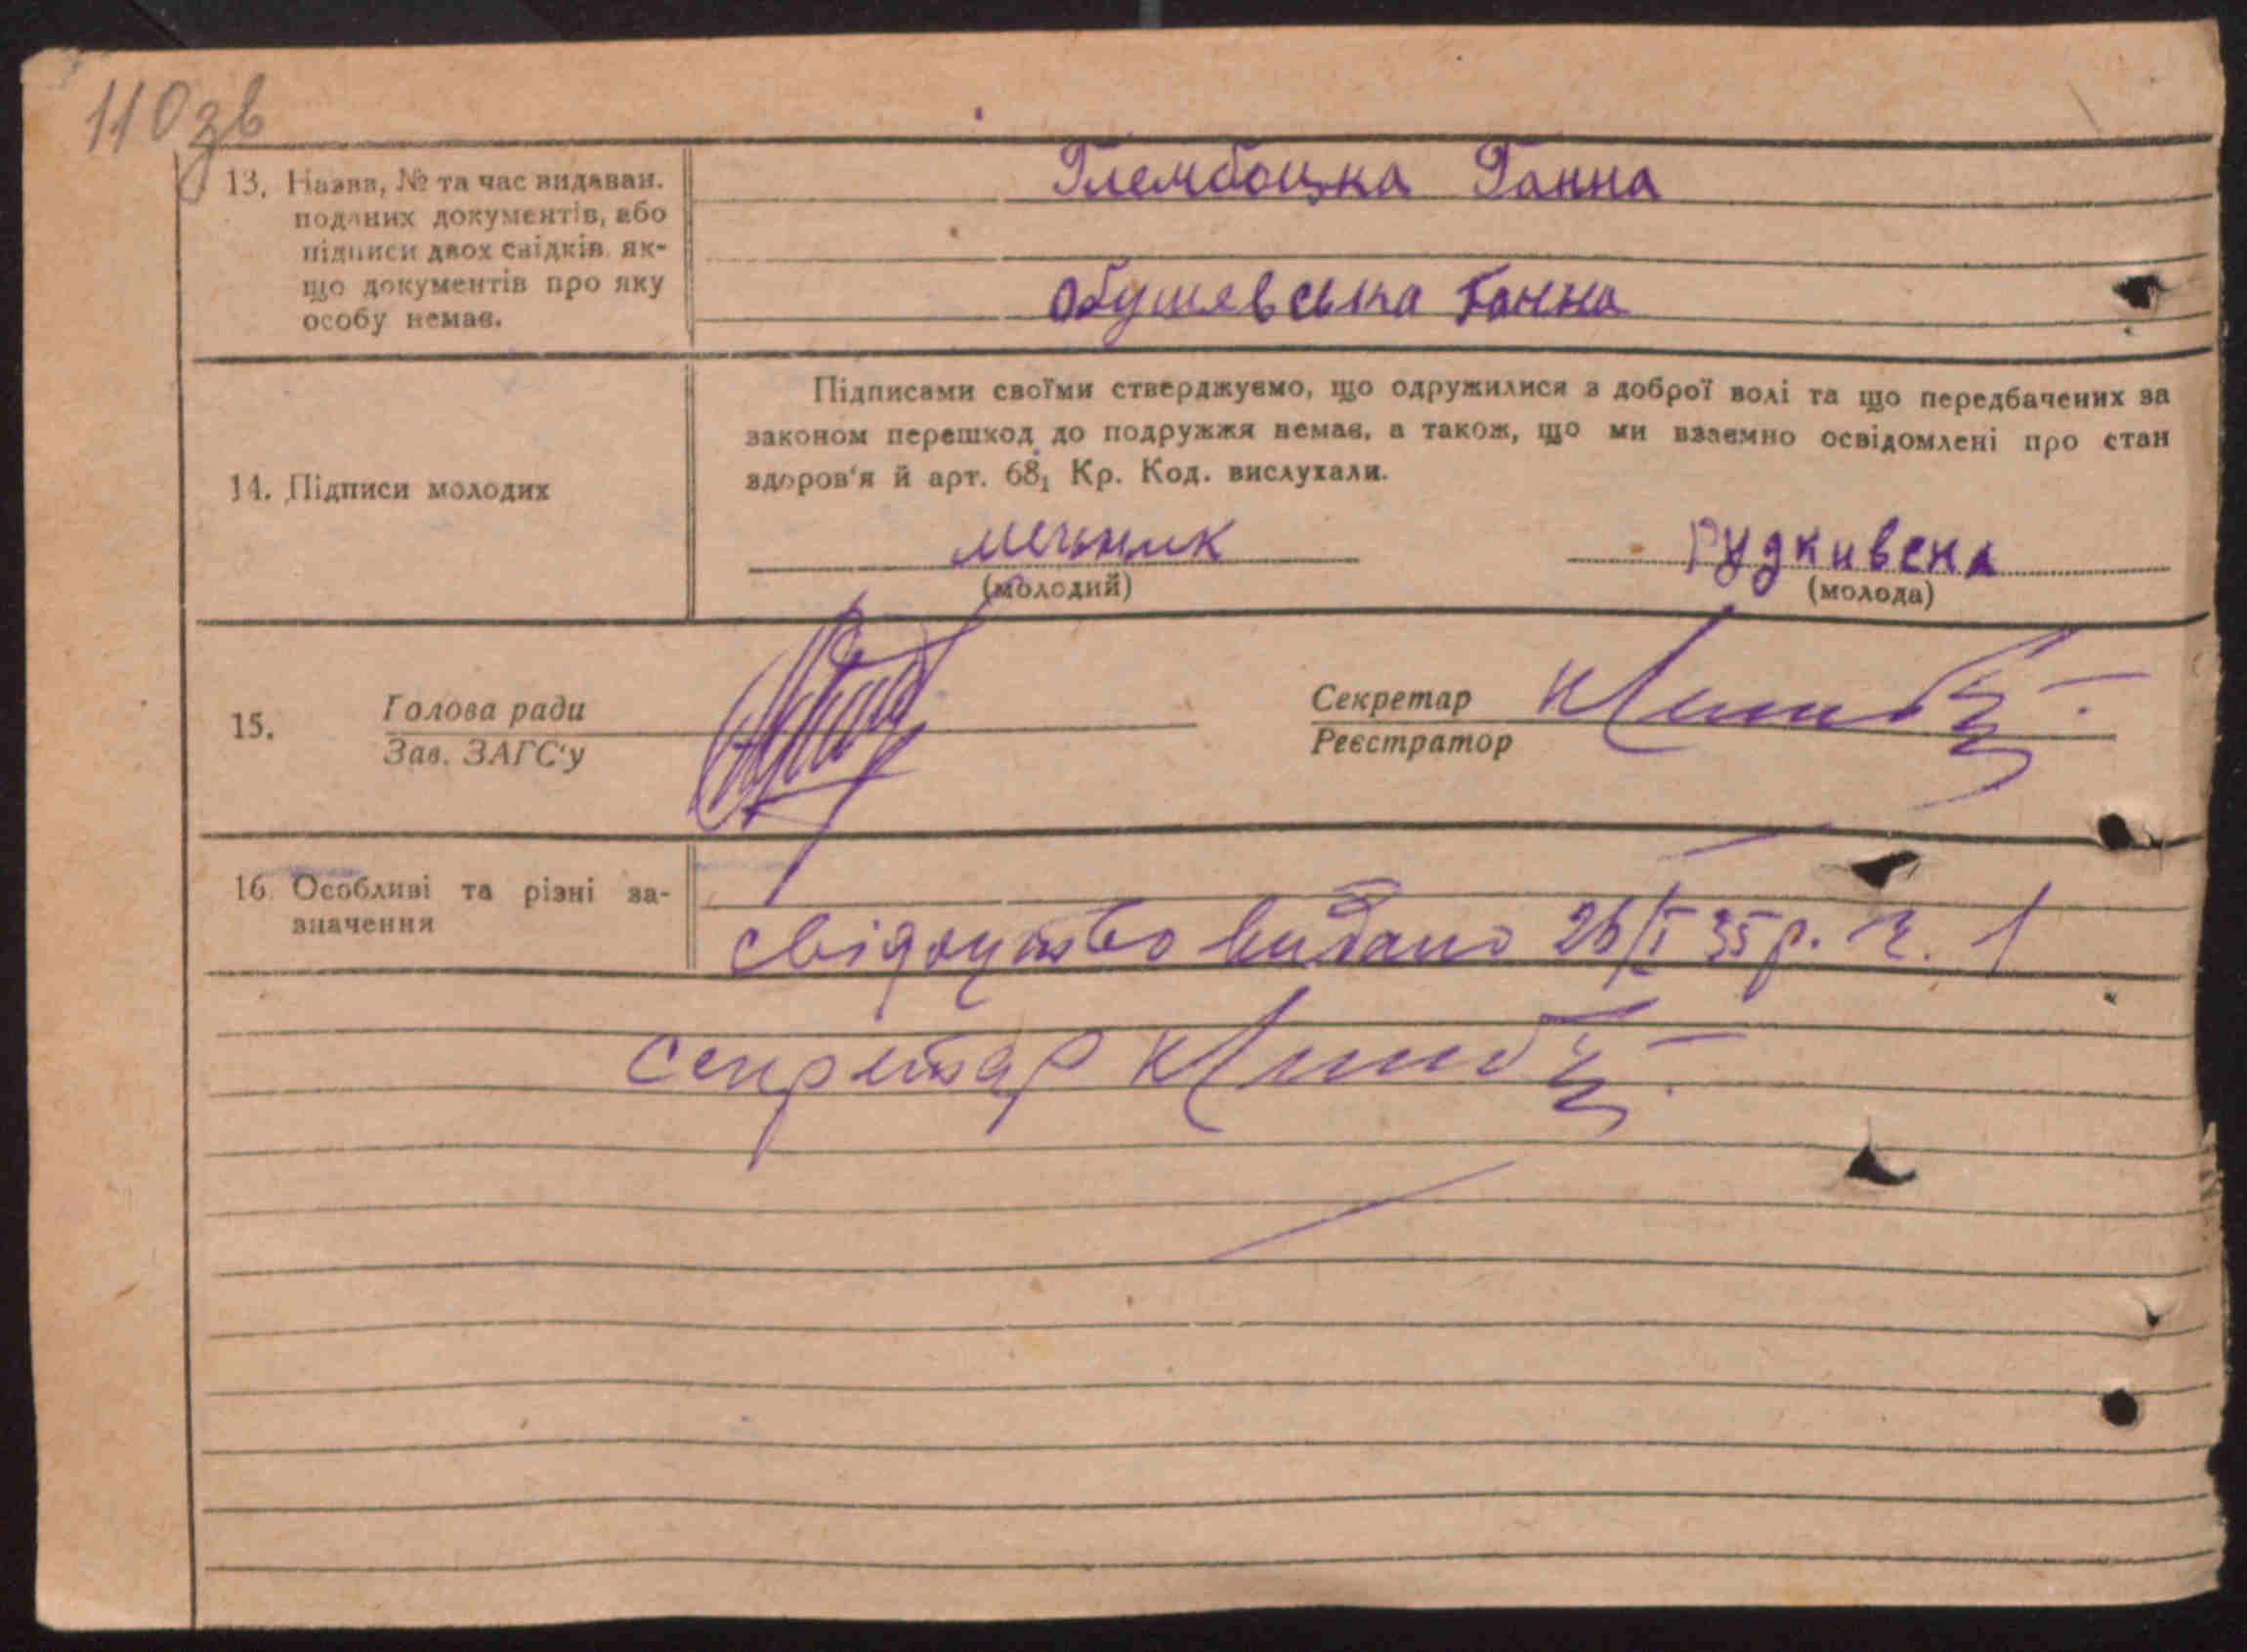 110 зв
13. Назва, № та час видаван.
поданих документів, або
підписи двох свідків, як-
що документів про яку
особу немає.
Глембоцька Ганна
Обушевська Ганна
14. Підписи молодих
Підписами своїми стверджуємо, що одружилися з доброї волі та що передбачених за
законом перешкод до подружжя немає, а також, що ми взаємно освідомлені про стан
здоров'я й арт. 68₁ Кр. Код. вислухали.
мельник
(молодий)
(молода)
15.
Голова ради
Зав. ЗАГС'у
Секретар
Реєстратор
16. Особливі та різні за-
значення
свідоцтво видано 26/I 35 р.
секретар